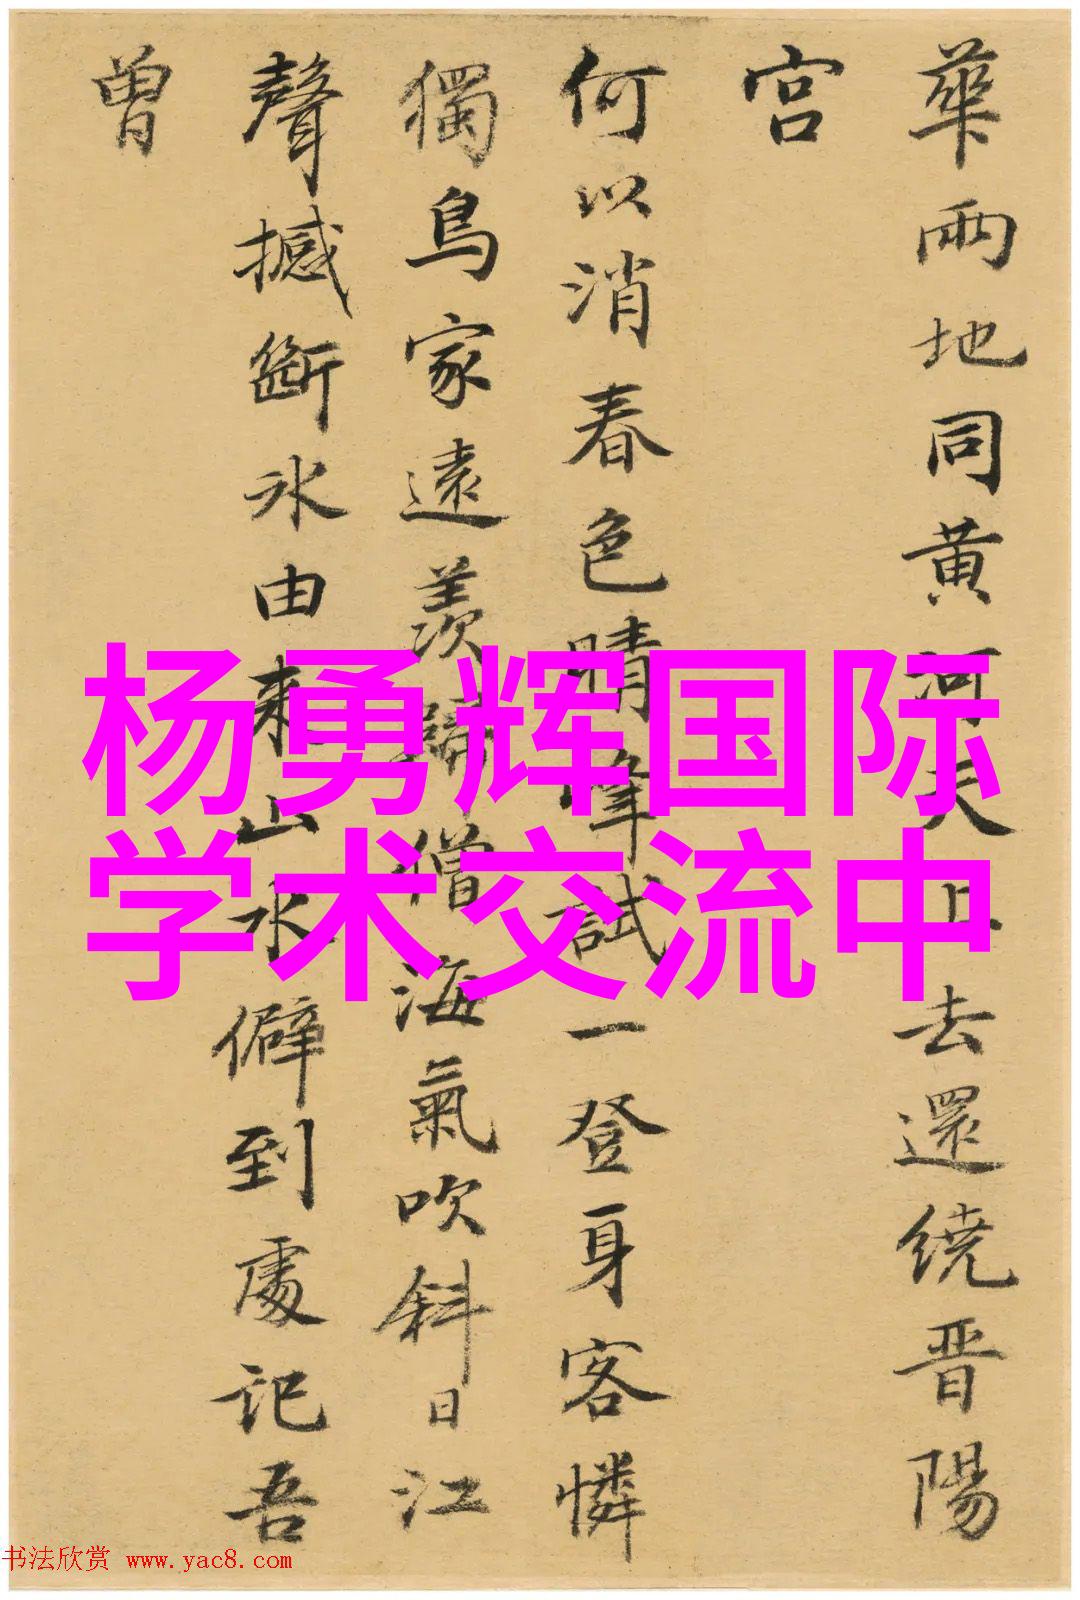 華兩地同黄河天上去還繞晋陽
宫
何以消春色晴峰試一登身客憐
獨鳥家遠羨歸僧海氣吹斜日江
聲撼斷冰由来山水僻到處記吾
曾
杨勇辉国际
学术交流中
书法欣赏 www.yac8.com